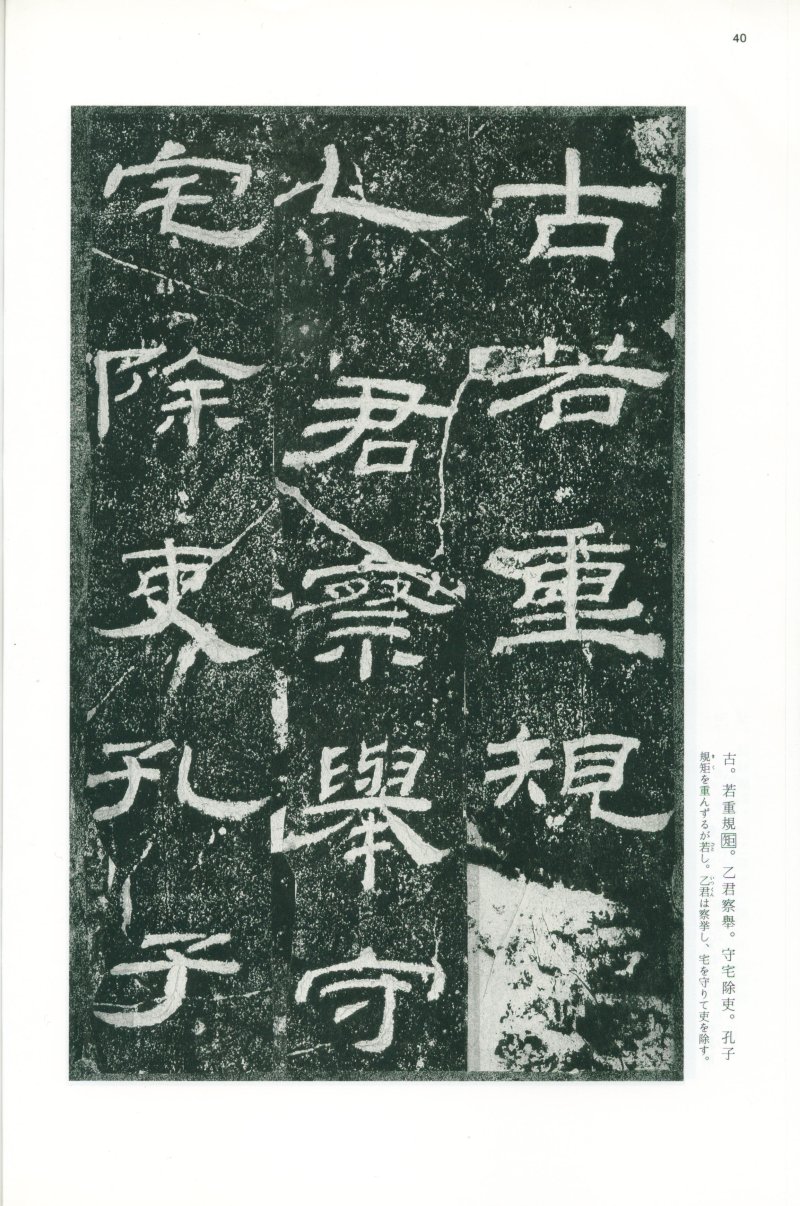 40
古若重規
乙君察舉守
宅除吏孔子
古。若重規矩。乙君察舉。守宅除吏。孔子
規矩を重んずるが若し。乙君は察挙し、宅を守りて吏を除す。